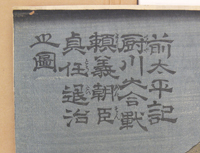 前太平記
厨川大合戦
頼義朝臣
貞任退治
之圖